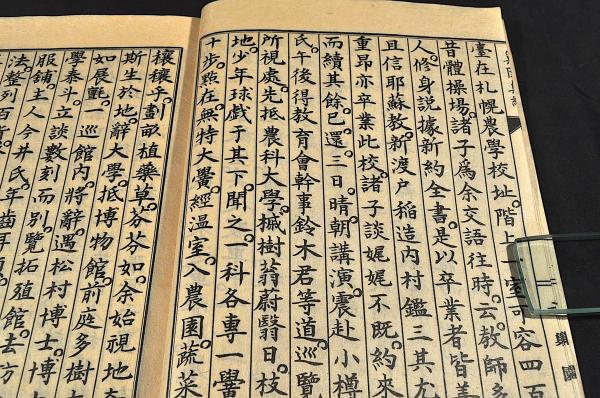 臺在札幌農學校址。階上一室可容四百
昔體操場。諸子爲余交語往時云。教師多
人。修身説據新約全書。是以卒業者皆善
且信耶蘇教。新渡戸稻造内村鑑三其尤
重昂亦卒業此校。諸子談娓娓不既。約來
而續其餘。已還。三日。晴。朝講演震赴小樽
氏。午後得教育會幹事鈴木君等道。巡覽
所視處。先抵農科大學。槭樹蓊蔚翳日。枝
地。少年球戲于其下。聞之。一科各專一黌
十步。點在。無特大黌。經温室。入農園。蔬菜
穰穰乎。劃畝植藥草。芬芬如。余始視地
斯生於地。辭大學。抵博物館。前庭多樹
如展氈。一巡館内。將辭。遇松村博士。博
學泰斗。立談數刻而別。覽拓殖館。去方
服鋪。主人今井氏。年齒
法整列百貨